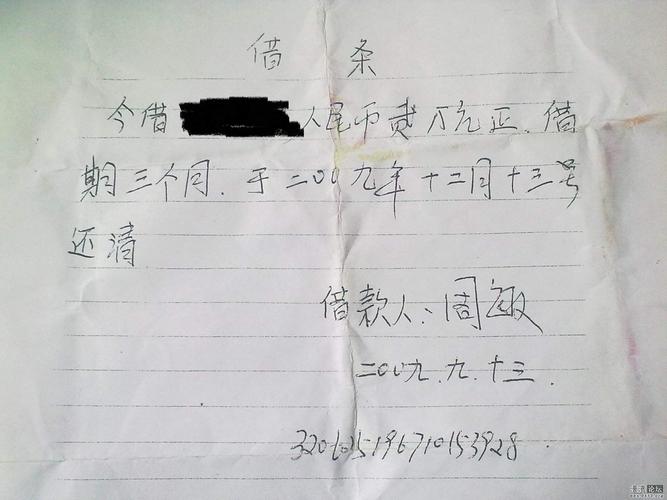 借 条
今借 人民币贰万元正. 借
期三个月. 于二00九年十二月十三号
还清
借款人: 周敏
二00九.九.十三.